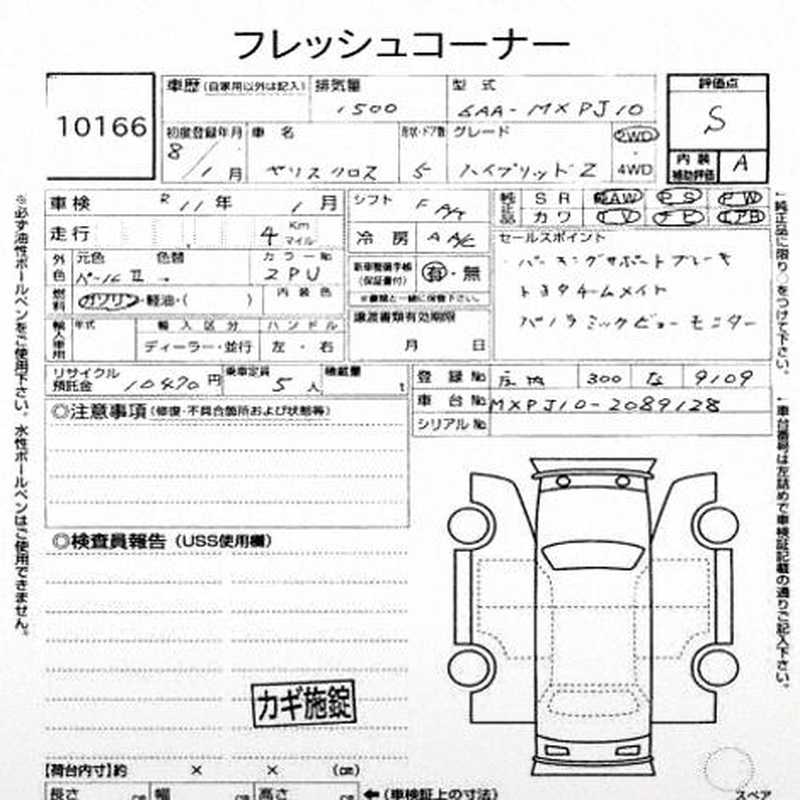 フレッシュコーナー
10166
車歴(自家用以外は記入) 排気量 1500
型式 6AA-MXPJ10
評価点 S
初度登録年月 8/1月
車名 ヤリスクロス
形状・ドア数 5
グレード ハイブリッドZ
2WD・4WD
内装補助評価 A
車検 R11年1月
シフト F A/T
純正品 SR AW PS PW
カワ TV ナビ エアB
走行 4 Km マイル
冷房 AAC
セールスポイント
・パーキングサポートブレーキ
トヨタチームメイト
パノラミックビューモニター
外色 元色 パールII 色替 → カラーNo 2PU
新車整備手帳(保証書付) 有・無
※書類と一緒に保管下さい。
燃料 ガソリン・軽油・( ) 内装色
輸入車用 年式 輸入区分 ハンドル
ディーラー・並行 左・右
譲渡書類有効期限
月 日
リサイクル預託金 10470円 乗車定員 5人 積載量 t
登録No 300 な 9109
車台No MXPJ10-2089128
シリアルNo
◎注意事項(修復・不具合箇所および状態等)
◎検査員報告(USS使用欄)
カギ施錠
【荷台内寸】約 × × (cm)
長さ cm 幅 cm 高さ cm ←(車検証上の寸法)
スペア
※必ず油性ボールペンをご使用下さい。水性ボールペンはご使用できません。
←純正品に限り○をつけて下さい。
←車台番号は左詰めで車検証記載の通りご記入下さい。